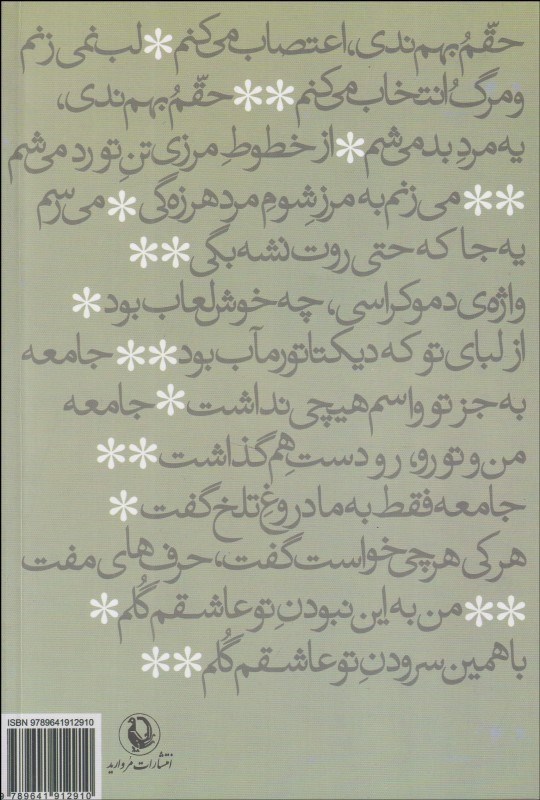 حقّمُ بهم ندی، اعتصاب می‌کنم * لب نمی زنم
و مرگُ انتخاب می‌کنم ** حقّمُ بهم ندی،
یه مردِ بد می‌شم * از خطوطِ مرزیِ تنِ تو رد می‌شم
** می زنم به مرزِ شومِ مردِ هرزه‌گی * می رسم
یه جا که حتی روت نشه بگی **
واژه‌ی دموکراسی، چه خوش لعاب بود *
از لبای تو که دیکتاتورمآب بود ** جامعه
به جز تو واسم هیچی نداشت * جامعه
من و تو رو، رو دستِ هم گذاشت **
جامعه فقط به ما دروغِ تلخ گفت *
هرکی هرچی خواست گفت، حرف های مفت
** من به این نبودنِ تو عاشقم گُلم *
با همین سرودنِ تو عاشقم گُلم **
ISBN 9789641912910
انتشارات مروارید
9 789641 912910